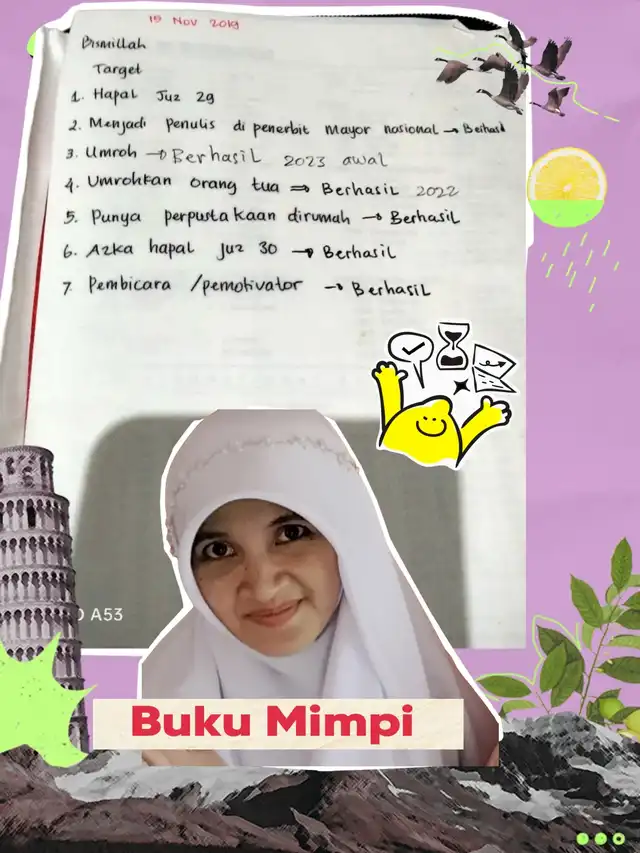 15 Nov 2019
Bismillah
Target
1. Hapal Juz 29
2. Menjadi Penulis di penerbit Mayor nasional → Berhasil
3. Umroh → Berhasil 2023 awal
4. Umrohkan orang tua ⇒ Berhasil 2022
5. Punya perpustakaan dirumah → Berhasil
6. Azka hapal juz 30 → Berhasil
7. Pembicara /pemotivator → Berhasil
A53
Buku Mimpi